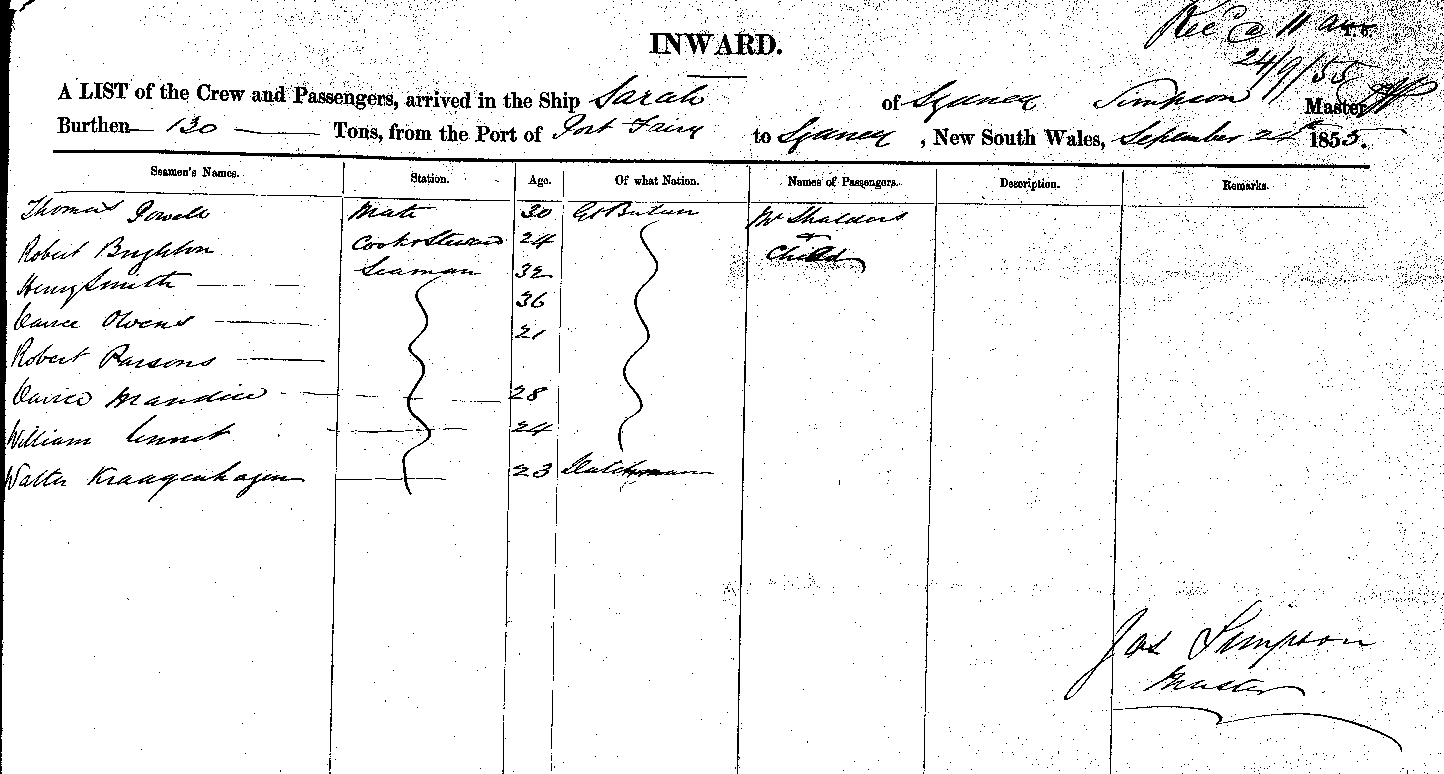 Rec @ 11 am
24/9/55
INWARD.
A LIST of the Crew and Passengers, arrived in the Ship Sarah of Sydney Simpson Master
Burthen 130 Tons, from the Port of Port Fairy to Sydney, New South Wales, September 1855.
Seamen's Names. Station. Age. Of what Nation. Names of Passengers. Description. Remarks.
Thomas Powell Mate 30 Gt Britain Mr Shalders
Robert Brighton Cook & Steward 24 & Child
Henry Smith Seaman 32
Owens 36
Robert Parsons 21
28
William 24
Walter Kraagenhagen 23 Dutchman
Jas Simpson
Master